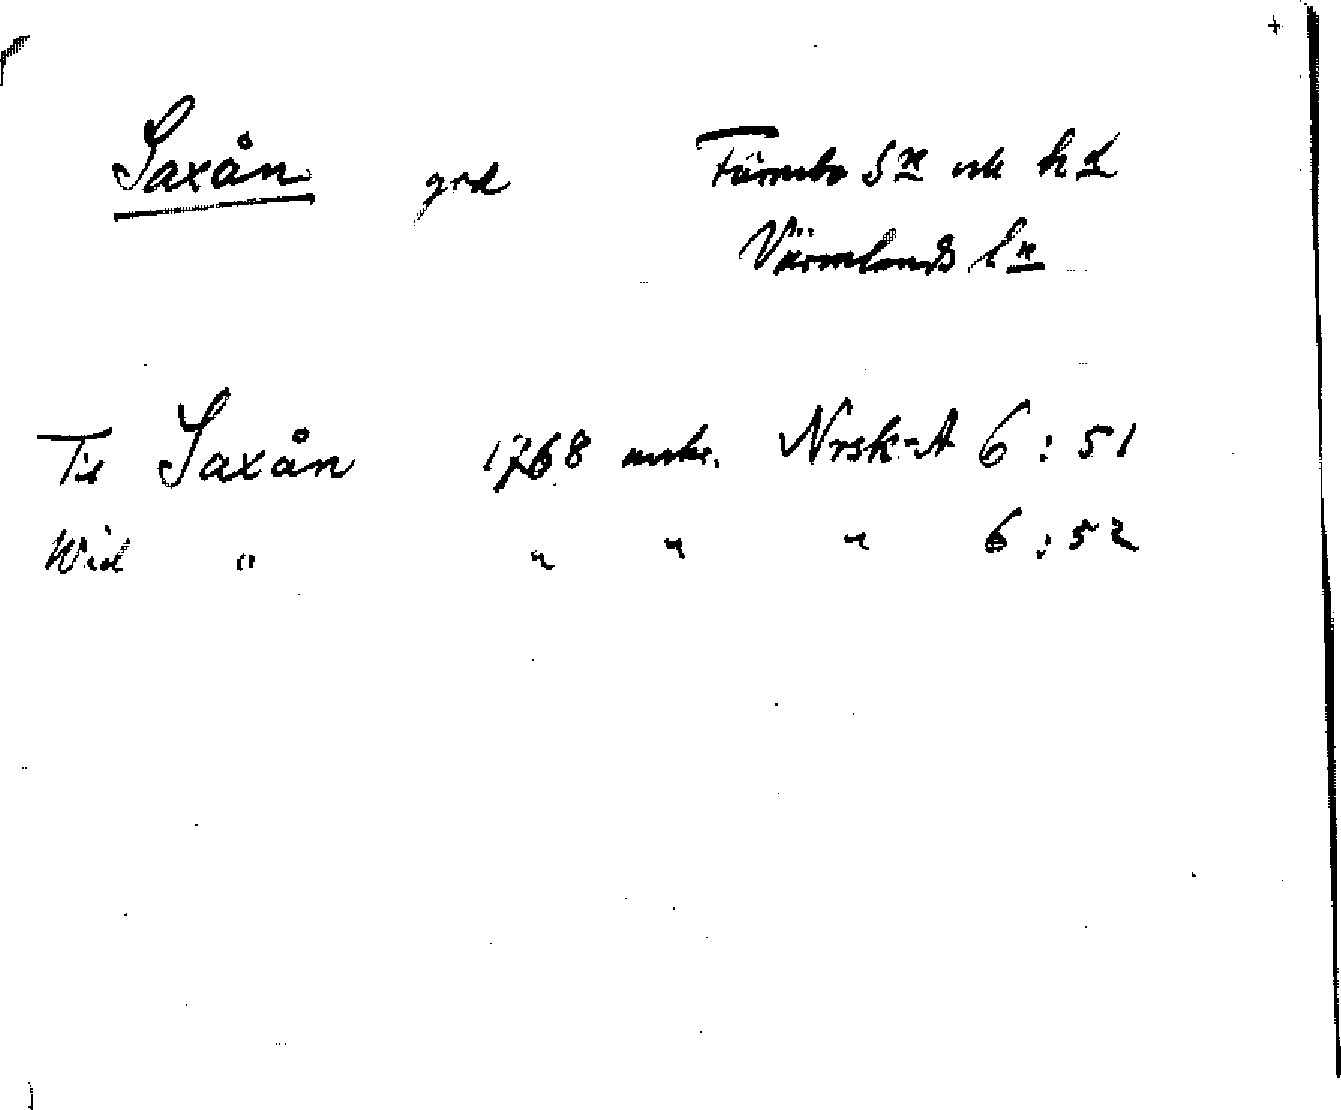 Saxån grd Färnebo sn och hd
Värmlands ln
Til Saxån 1768 avskr. Nrsk-A 6:51
Wid " " " " 6:52